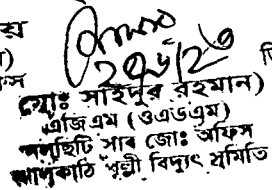 য়
মোঃ সাইদুর রহমান)
এজিএম (ওএন্ডএম)
নলছিটি সাব জোঃ অফিস
ঝালকাঠি পল্লী বিদ্যুৎ সমিতি